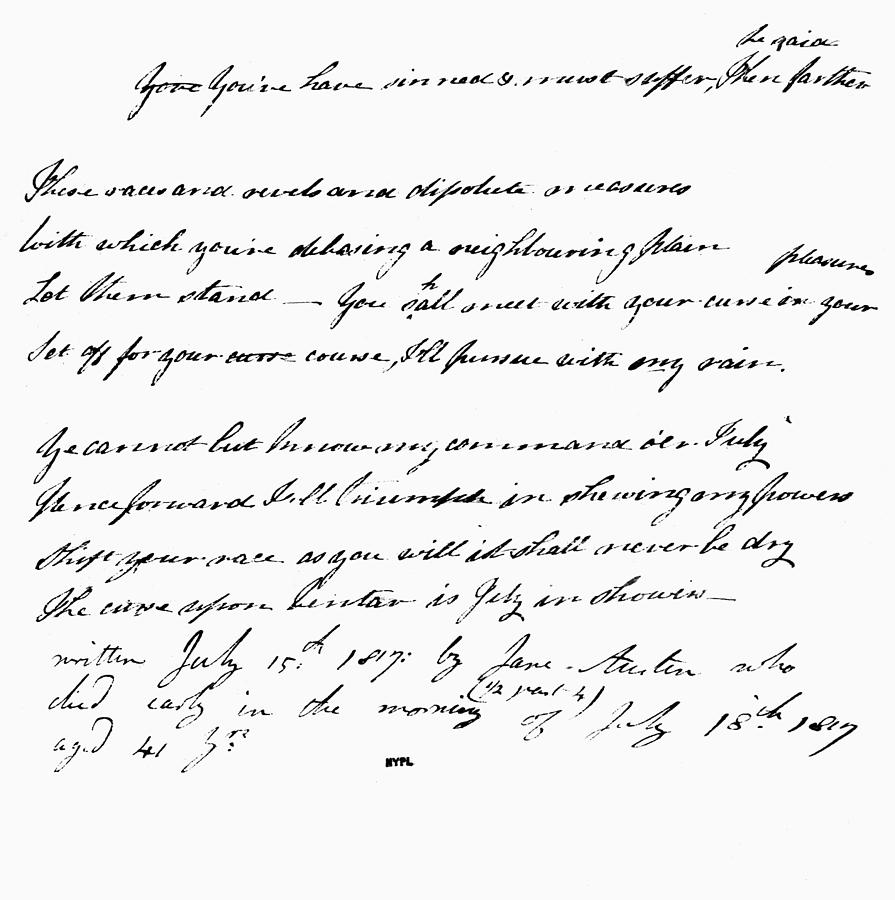 he said
Yove You've have sinned & must suffer, Then farther
These races and revels and dissolute measures
With which you're debasing a neighbouring Plain
pleasures
Let them stand — You shall meet with your curse in your
Set off for your curse course, I'll pursue with my rain.
Ye cannot but know my command o'er July
Henceforward I'll triumph in shewing my powers
Shift your race as you will it shall never be dry
The curse upon Venta is July in showers —
written July 15.th 1817: by Jane Austen who
died early in the morning (1/2 past 4) of July 18th 1817
aged 41 yrs
NYPL